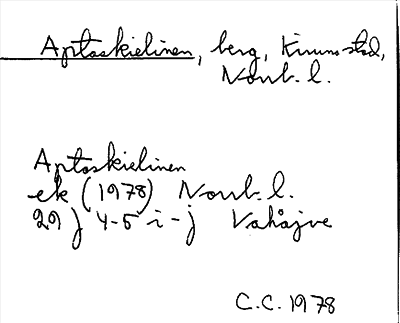 Aptaskielinen, berg, Kiruna stad,
Norrb. l.
Aptaskielinen
ek (1978) Norrb. l.
29 J 4-5 i-j Vahåjve
C.C. 1978